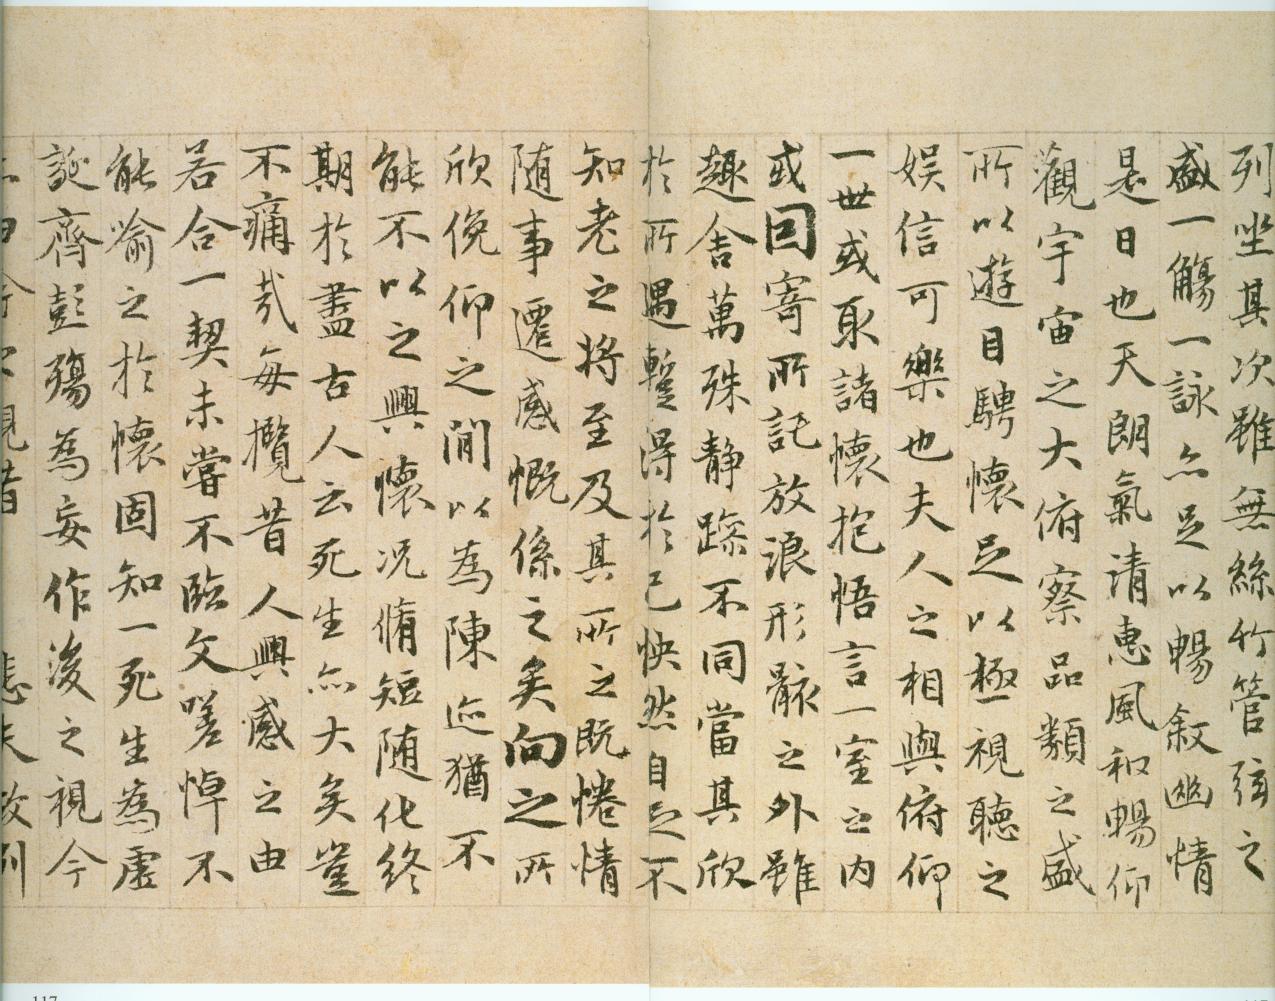 列坐其次雖無絲竹管弦之
盛一觴一詠亦足以暢敘幽情
是日也天朗氣清惠風和暢仰
觀宇宙之大俯察品類之盛
所以遊目騁懷足以極視聽之
娛信可樂也夫人之相與俯仰
一世或取諸懷抱悟言一室之內
或因寄所託放浪形骸之外雖
趣舍萬殊靜躁不同當其欣
於所遇蹔得於己怏然自足不
知老之將至及其所之既惓情
隨事遷感慨係之矣向之所
欣俛仰之閒以為陳迹猶不
能不以之興懷況脩短隨化終
期於盡古人云死生亦大矣豈
不痛哉每攬昔人興感之由
若合一契未嘗不臨文嗟悼不
能喻之於懷固知一死生為虛
誕齊彭殤為妄作後之視今
視昔 悲夫故列
117